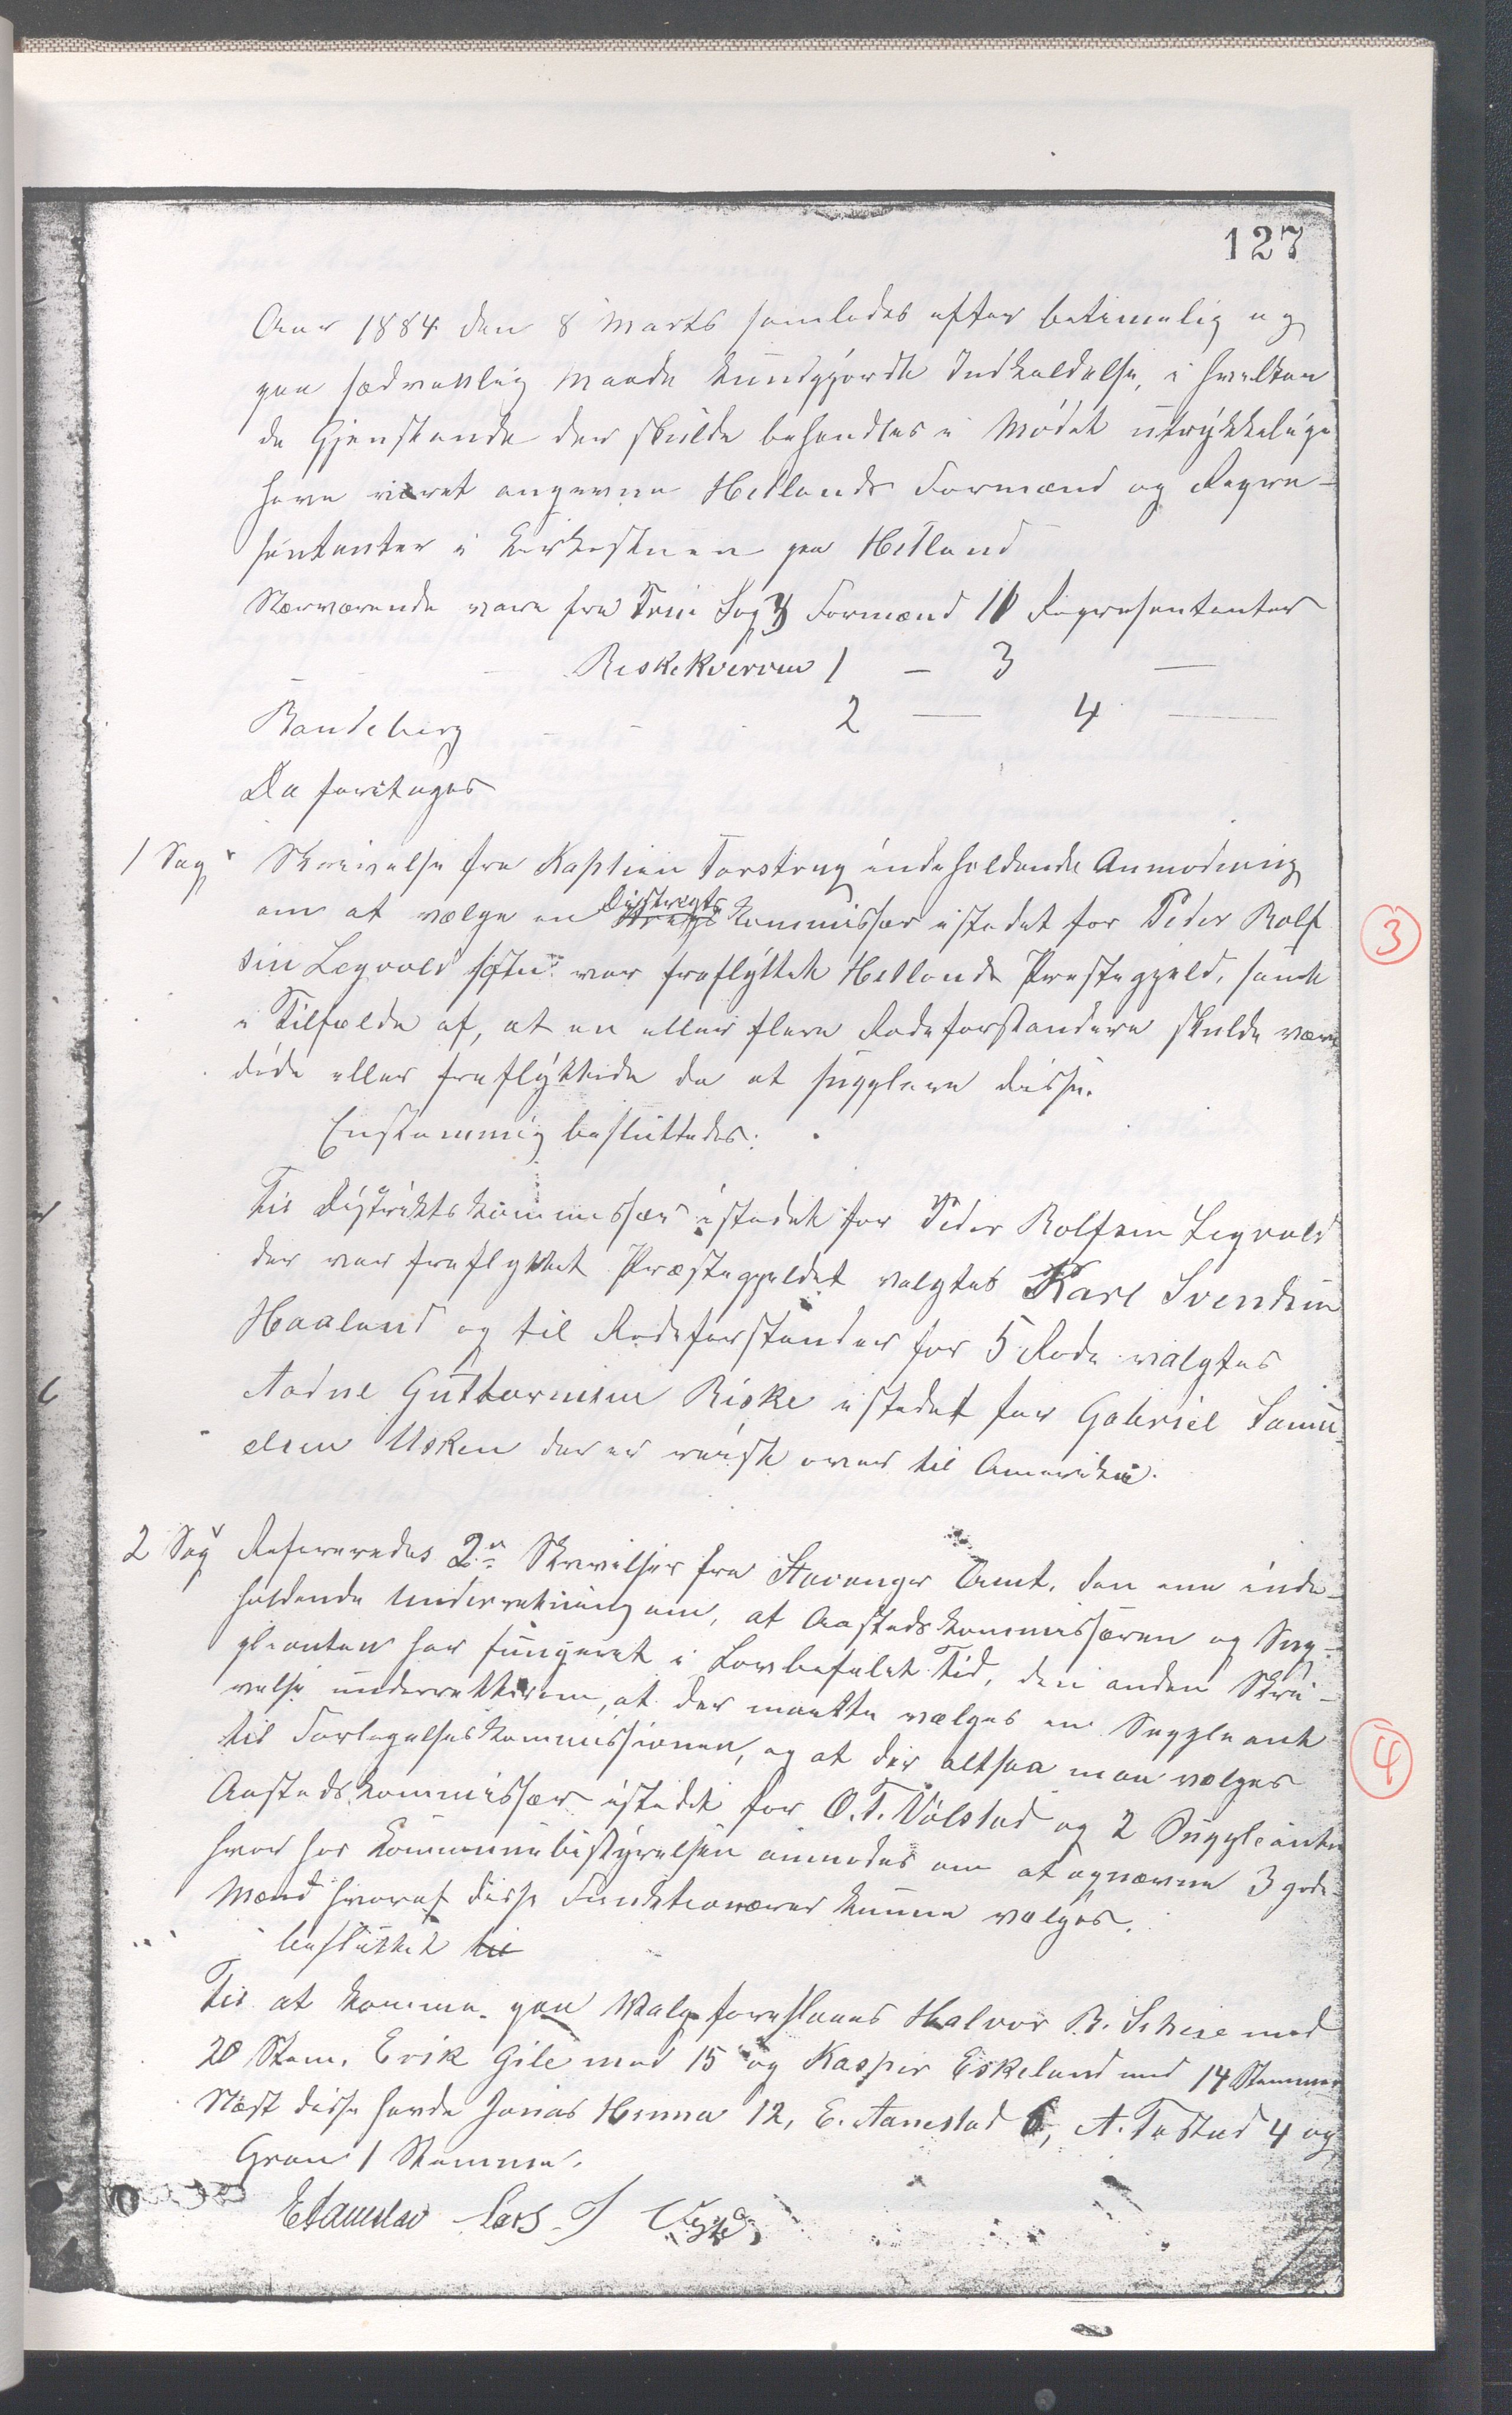 127
Aar 1884 den 8 Marts samledes efter betimelig og
paa sædvanlig Maade kundgjordte Indkaldelse, i hvilken
de Gjenstande der skulde behandles i Mødet utrykkelige
have været angivne Hetlands Formænd og Repre-
sentanter i Kirkestuen paa Hetland
Nærværende vare fra Sog 3 Formænd 11 Representanter
Riske Kverven 1 – 3 —
Randeberg - - - 2 — 4 —
Da foretages
1 Sag Skrivelse fra Kaptein Torstrup indeholdende Anmodning
om at vælge en Distrigts Kommissær istedet for Peder Rolf
sen Legvold som var fraflyttet Hetlands Prestegjeld, samt
i Tilfælde af, at en eller flere Rodeforstandere skulde være
døde eller fraflyttede da at supplere disse.
Enstemmig besluttedes:
Til Distriktskommissær istedet for Peder Rolfsen Legvold
der var fraflyttet Præstegjeldet valgtes Karl Svendsen
Haaland og til Rodeforstander for 5 Rode valgtes
Aadne Guttormsen Riske istedet for Gabriel Samu
elsen Usken der er reist over til Amerika.
3
2 Sag Refereredes 2de Skrivelser fra Stavanger Amt, den ene inde-
holdende Underretning om, at Aastedskommissæren og Sup-
pleanten har fungeret i Lovbefalet Tid, den anden Skri-
velse underretter om, at der maatte vælges en Suppleant
til Forlegelseskommissionen, og at der altsaa maa vælges
Aastedskommissær istedet for O. T. Vølstad og 2 Suppleanter
hvorfor Kommunebestyrelsen anmodes om at opnævne 3 gode
Mænd hvoraf disse Funktionærer kunne vælges.
4
besluttet til
Til at komme paa Valg foreslaaes Halvor B. Scheie med
20 Stem. Erik Gile med 15 og Kasper Eskeland med 14 Stemmer
Næst disse havde Jonas Hinna 12, E. Aanestad 6, A. Tastad 4 og
Gran 1 Stemme.
E Aanestad Lars